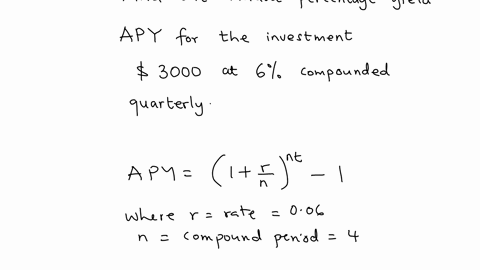 percentage yield
APY for the investment
$ 3000 at 6% compounded
quarterly.
APY = (1 + r/n)^nt - 1
where r = rate = 0.06
n = compound period = 4